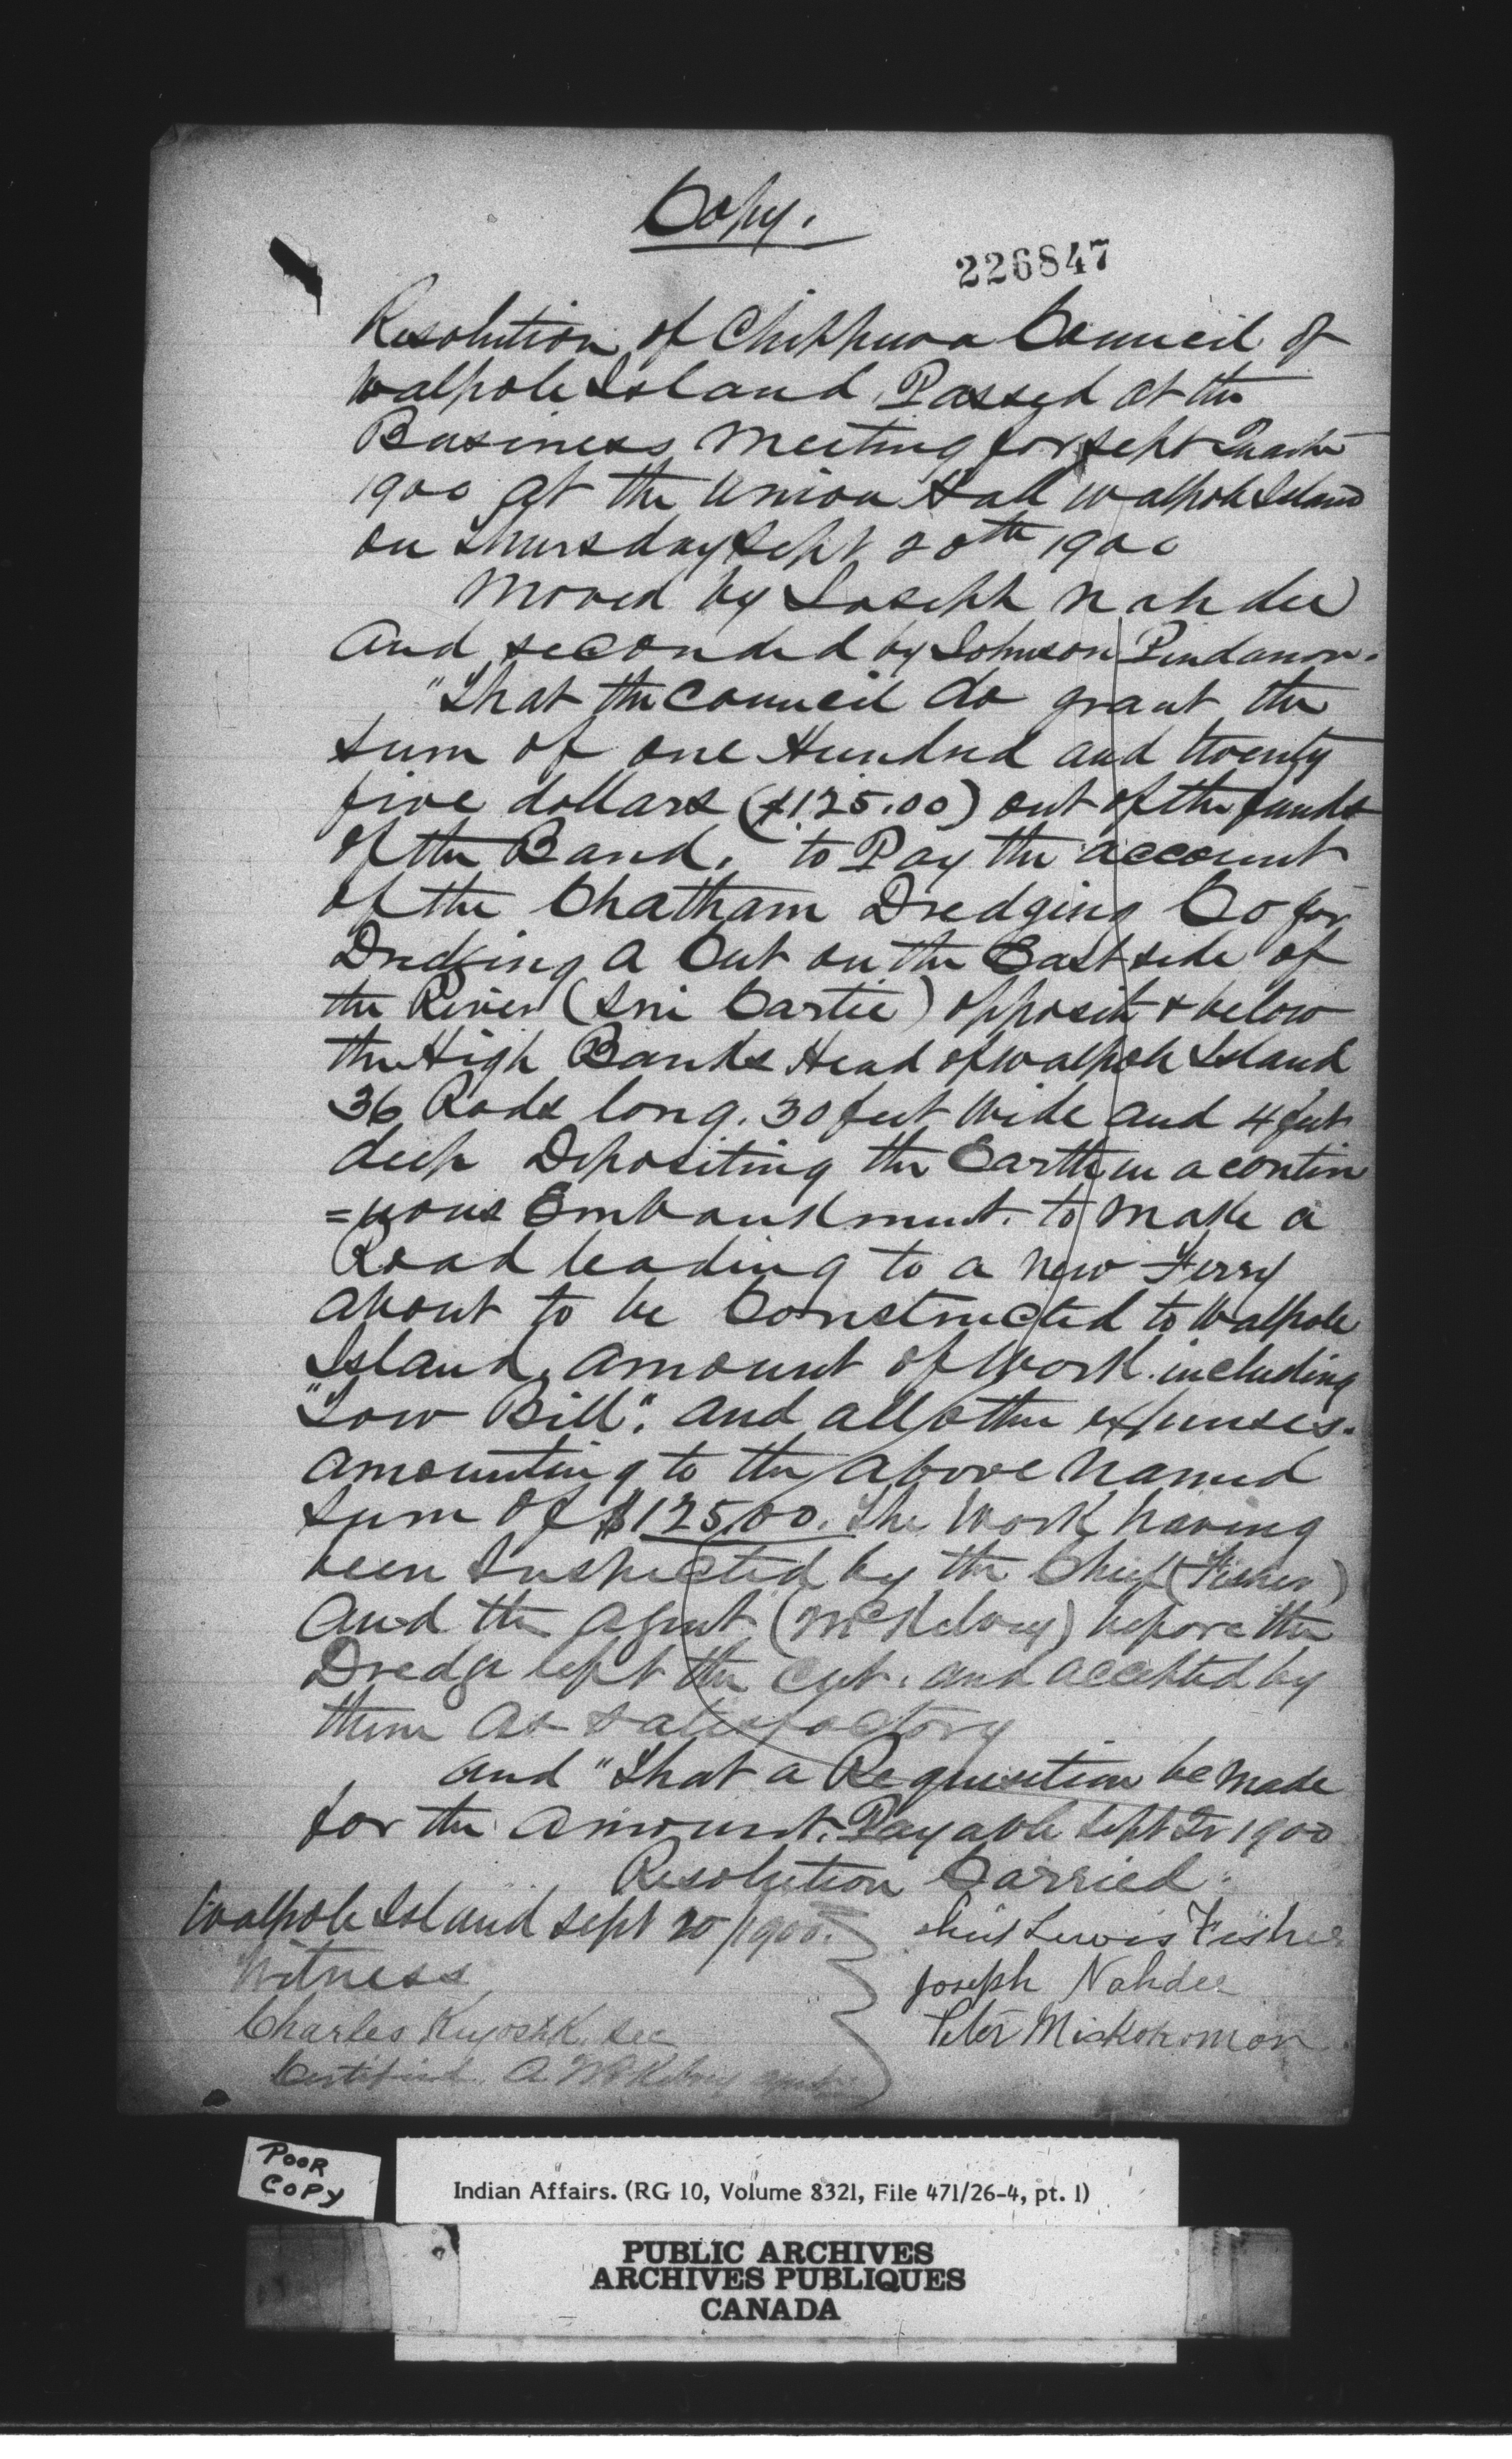 Copy.
226847
Resolution of Chippewa Council of
Walpole Island, Passed at the
Business Meeting for Sept Quarter
1900 at the Union Hall Walpole Island
on Thursday Sept 20th 1900
Moved by Joseph Nahdee
and seconded by Johnson Pindanon.
"That the Council do grant the
sum of one Hundred and twenty
five dollars ($125.00) out of the funds
of the Band. to Pay the account
of the Chatham Dredging Co for
Dredging a Cut on the East side of
the River (Sni Cartie) opposit & below
the High Banks Head of Walpole Island
36 Rods long. 30 feet Wide and 4 feet
deep Depositing the Earth in a contin
=uous Embankment. to make a
Road leading to a new Ferry
about to be Constructed to Walpole
Island, amount of Work including
"Tow Bill". and all other expenses.
amounting to the above named
sum of $125.00. The Work having
been Inspected by the Chief (Fisher)
and the Agent (McKelvey) before the
Dredge left the Cut. and accepted by
them as satisfactory
and "That a Requisition be made
for the amount. Payable Sept 1900
Resolution Carried.
Walpole Island Sept 20/1900.
Chief Lewis Fisher
Witness
Joseph Nahdee
Charles Kiyoshk. Sec
Peter Miskokomon
Certified. A McKelvey agent
POOR
COPY
Indian Affairs. (RG 10, Volume 8321, File 471/26-4, pt. 1)
PUBLIC ARCHIVES
ARCHIVES PUBLIQUES
CANADA